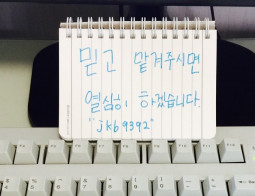 믿고 맡겨주시면
열심히 하겠습니다.
"jkb9392"